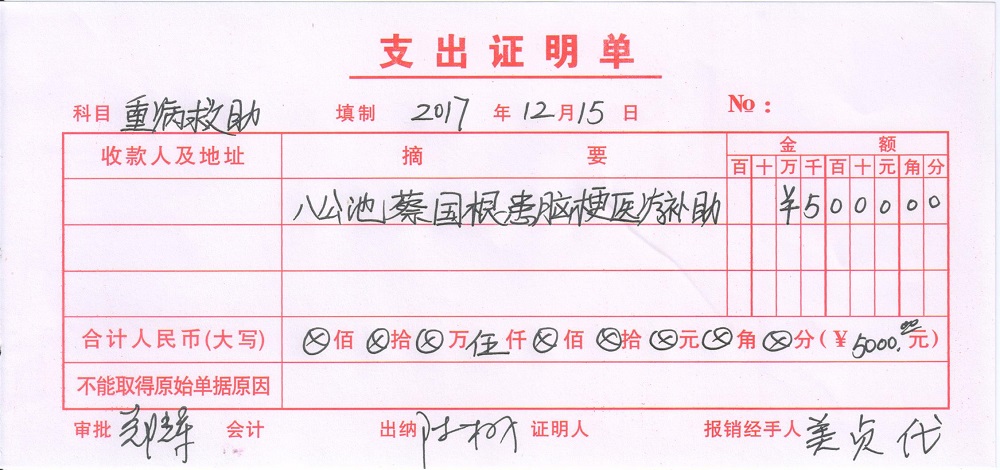 支出证明单
科目 重病救助 填制 2017 年 12 月 15 日 No:
收款人及地址 摘要 金额
百 十 万 千 百 十 元 角 分
八公池蔡国根患脑梗医疗补助 ¥500000
合计人民币(大写) ⊗佰⊗拾⊗万伍仟⊗佰⊗拾⊗元⊗角⊗分(¥5000.00元)
不能取得原始单据原因
审批 会计 出纳 证明人 报销经手人 美贞代